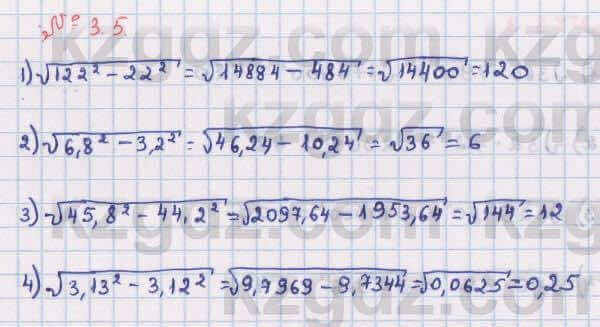 № 3.5.
1) √122² − 22² = √14884 − 484 = √14400 = 120
2) √6,8² − 3,2² = √46,24 − 10,24 = √36 = 6
3) √45,8² − 44,2² = √2097,64 − 1953,64 = √144 = 12
4) √3,13² − 3,12² = √9,7969 − 9,7344 = √0,0625 = 0,25
kzgdz.com
kzgdz.com
kzgdz.com
kzgdz.com